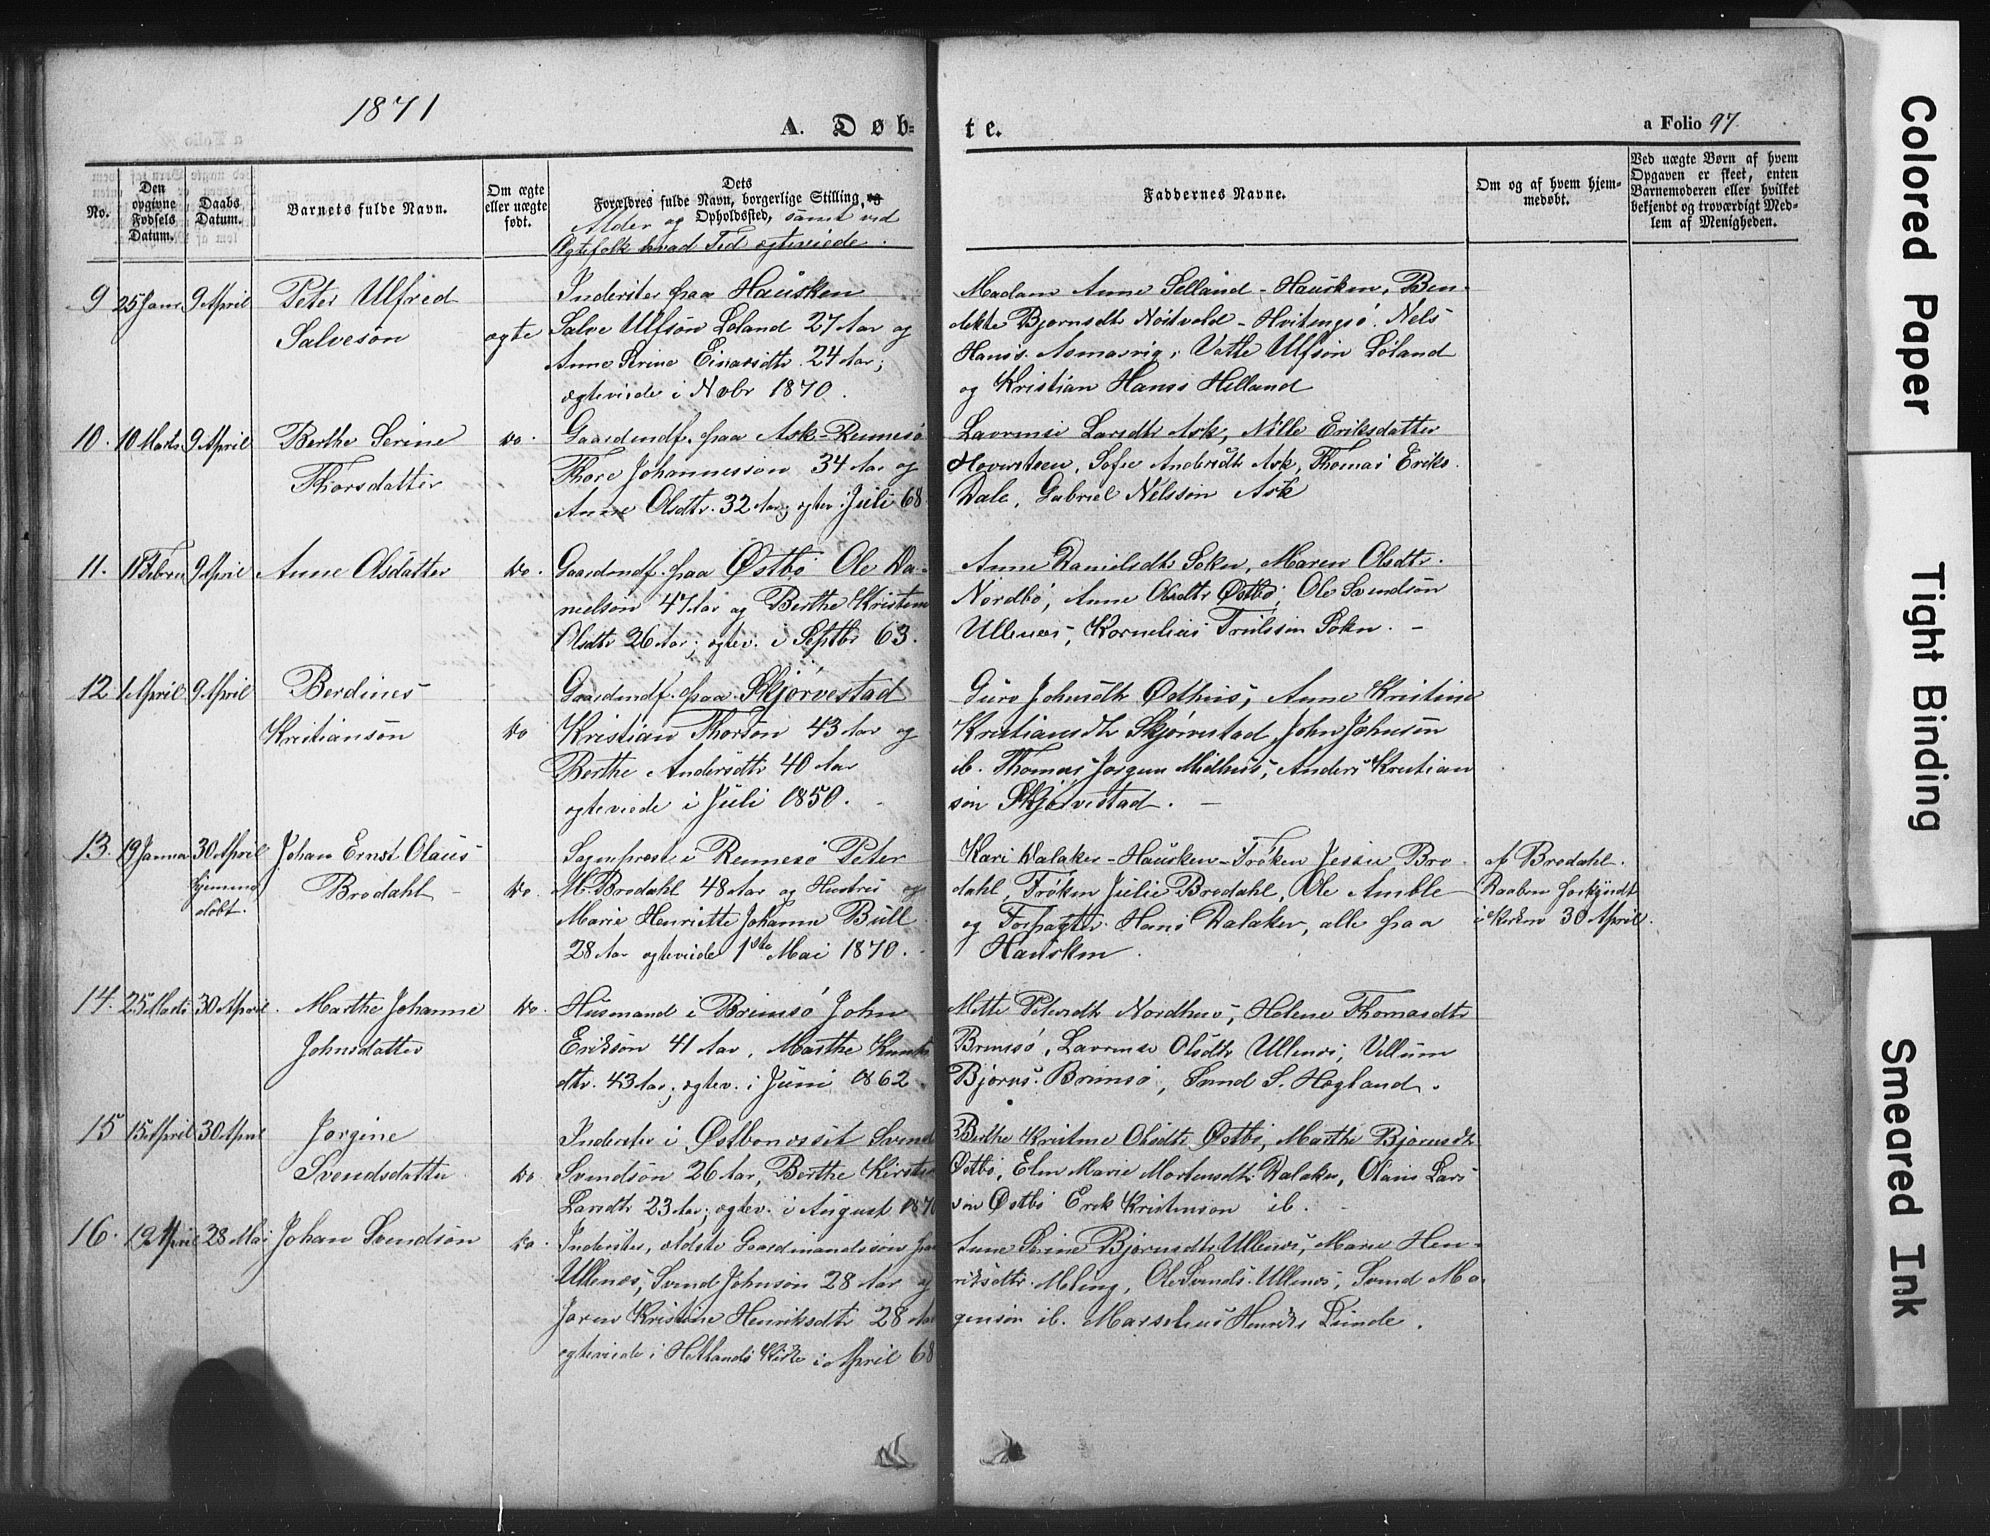 1871
A. Døb=
te.
a Folio 97.
No.
Den opgivne Fødsels Datum.
Daabs Datum.
Barnets fulde Navn.
Om ægte eller uægte født.
Dets Forældres fulde Navn, borgerlige Stilling, og Opholdssted, samt ved
Alder og
Ægtefolk hvad Tid ægteviede.
Faddernes Navne.
Om og af hvem hjem-
medøbt.
Ved uægte Børn af hvem
Opgaven er skeet, enten
Barnemoderen eller hvilket
bekjendt og troværdigt Med-
lem af Menigheden.
9 25 Janr 9 April Peter Ulfred
Salvesøn
ægte
Inderster paa Hausken
Salve Ulfsøn Løland 27 Aar og
Anne Serine Einarsdtr 24 Aar;
ægteviede i Novbr 1870.
Madam Anne Selland - Hausken, Ben-
dikte Bjørnsdtr Hvitingsø. Nels
Hans's Vatte Ulfsøn Løland
og Kristian Hans's Helland
10. 10 Marts 9 April Berthe Serine
Thorsdatter
do.
Gaardmdf. paa Ask - Rennesø
Thore Johannessøn 34 Aar og
Anne Olsdtr. 32 Aar; ægtev. i Juli 68.
Lavrense Larsdtr Ask, Nille Eriksdatter
Hoversteen, Sofie Andersdtr Ask, Thomas Eriks.
Dale, Gabriel Nelssøn Ask
11. 11 Febru 9 April Anne Olsdatter
do.
Gaardmdf. paa Østbø Ole Da-
nielsøn 47 Aar og Berthe Kristine
Olsdtr 26 Aar; ægtev. i Septbr 63.
Anne Danielsdtr Sokn, Maren Olsdtr.
Nordbø, Anne Olsdtr Østbø, Ole Svendsøn
Ullenes, Kornelius Trulssøn Sokn. -
12 1 April 9 April Berdines
Kristiansøn
do
Gaardmdf. paa Skjørvestad
Kristian Thorsøn 43 Aar og
Berthe Andersdtr 40 Aar
ægteviede i Juli 1850.
Guro Johnsdtr Østhus, Anne Kristine
Kristiansdtr Skjørvestad, John Johnsøn
ib. Thomas Jørgens Midhus, Anders Kristian
søn Skjørvestad. -
13. 19 Janua 30 April Johan Ernst Olaus
hjemme
døbt.
Brodahl -
do.
Sogneprest i Rennesø Peter
M. Brodahl 48 Aar og Hustru
Marie Henriette Johanne Bull
28 Aar ægteviede 1ste Mai 1870.
Kari Dalaker - Hausken - Frøken Jessie Bro-
dahl, Frøken Julie Brodahl, Ole Amble
og Forpagter Hans Dalaker, alle paa
Hausken.
af Brodahl.
Daaben forkyndt
i Kirken 30 April.
14. 25 Marts 30 April. Marthe Johanne
Johnsdatter
do.
Husmand i Brimsø John
Eriksøn 41 Aar, Marthe Knuts
dtr. 43 Aar; ægtev. i Juni 1862.
Mette Petersdtr Nordhus, Helene Thomasdtr
Brimsø, Lavrense Olsdtr Ullenes, Villum
Bjørns. Brimsø, Svend S. Hegland.
15 15 April 30 April Jørgine
Svendsdatter
do.
Inderster i Østbønesset Svend
Svendsøn 26 Aar, Berthe Kirstine
Larsdtr 23 Aar; ægtev. i August 1870
Berthe Kristine Olsdtr Østbø, Marthe Bjørnsdtr
Østbø, Elen Marie Mortensdtr Dalaker, Olaus Lars
søn Østbø Erik Kristensøn ib.
16. 19 April 28 Mai Johan Svendsøn
do.
Inderster, ældste Gaardmandssøn fra
Ullenes, Svend Johnsøn 28 Aar og
Joren Kristine Henriksdtr 28 Aar
ægteviede i Hetlands Kirke i April 68
Anne Serine Bjørnsdtr Ullenes, Marie Hen-
riksdtr. Meling, Ole Svends. Ullenes, Svend Mo-
gensøn ib. Marselius Henriks Lunde.
Colored Paper
Tight Binding
Smeared Ink